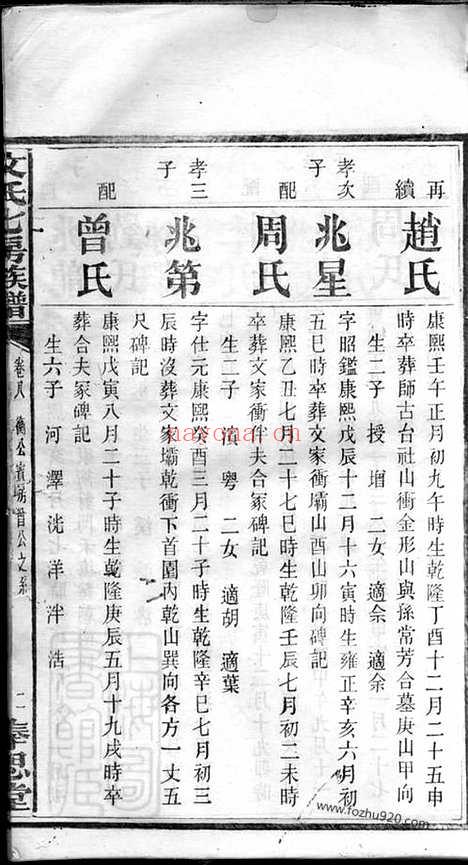 再續 趙氏
康熙壬午正月初九午時生乾隆丁酉十二月二十五申
時卒葬師古台社山衝金形山與孫常芳合墓庚山甲向
生二子 授 增 二女 適佘 適余
孝次子 兆星
字昭鑑康熙戊辰十二月十六寅時生雍正辛亥六月初
五巳時卒葬文家衝壩山酉山卯向碑記
配 周氏
康熙乙丑七月二十七巳時生乾隆壬辰七月初二未時
卒葬文家衝伴夫合冢碑記
生二子 粵 二女 適胡 適葉
孝三子 兆第
字仕元康熙癸酉三月二十子時生乾隆辛巳七月初三
辰時沒葬文家壩乾衝下首園內乾山巽向各方一丈五
尺碑記
配 曾氏
康熙戊寅八月二十子時生乾隆庚辰五月十九戌時卒
葬合夫冢碑記
生六子 河 澤 洸 洋 泮 浩
文氏七房族譜
卷八
二
奉思堂
www.fozhu920.com